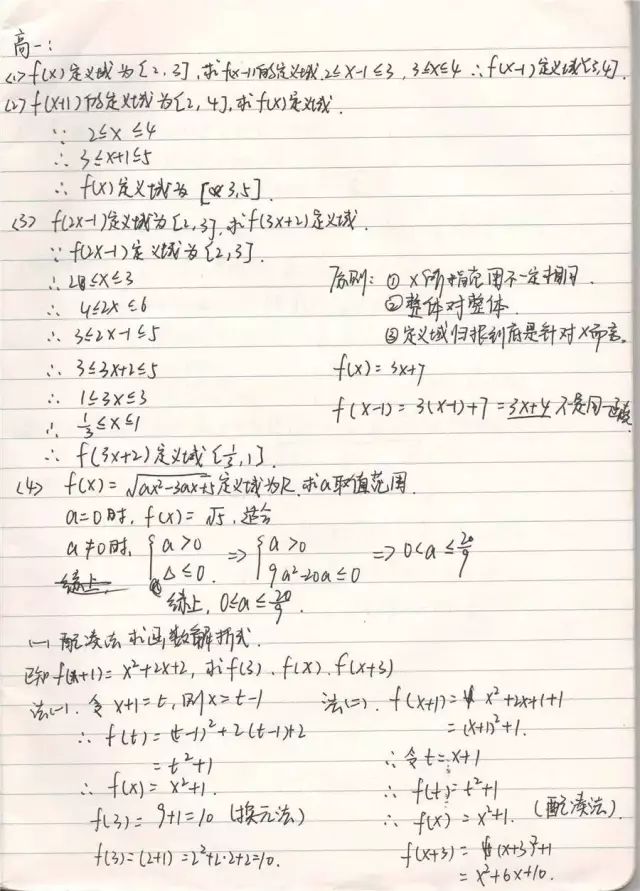 高一:
(1) f(x)定义域为[2,3],求f(x-1)的定义域.2≤x-1≤3,3≤x≤4 ∴f(x-1)定义域[3,4].
(2) f(x+1)的定义域为[2,4],求f(x)定义域.
∵ 2≤x≤4
∴ 3≤x+1≤5
∴ f(x)定义域为[3,5].
(3) f(2x-1)定义域为[2,3],求f(3x+2)定义域.
∵ f(2x-1)定义域为[2,3].
∴ 2≤x≤3
∴ 4≤2x≤6
∴ 3≤2x-1≤5
∴ 3≤3x+2≤5
∴ 1≤3x≤3
∴ 1/3≤x≤1
∴ f(3x+2)定义域[1/3,1].
原则: ① x所指范围不一定相同.
② 整体对整体.
③ 定义域归根到底是针对x而言.
f(x)=3x+7
f(x-1)=3(x-1)+7=3x+4 不是同一函数
(4) f(x)=√(ax²-3ax+5)定义域为R,求a取值范围.
a=0时,f(x)=√5,适合
a≠0时,{a>0 ⇒ {a>0 ⇒ 0<a≤20/9
Δ≤0. 9a²-20a≤0
综上,0≤a≤20/9.
(一) 配凑法求函数解析式.
已知f(x+1)=x²+2x+2,求f(3)、f(x)、f(x+3)
法(一).令x+1=t,则x=t-1
∴ f(t)=(t-1)²+2(t-1)+2
=t²+1
∴ f(x)=x²+1.
f(3)=9+1=10 (换元法)
f(3)=(2+1)=2²+2·2+2=10.
法(二).f(x+1)=x²+2x+1+1
=(x+1)²+1.
∴令t=x+1
∴ f(t)=t²+1
∴ f(x)=x²+1. (配凑法)
f(x+3)=(x+3)²+1
=x²+6x+10.